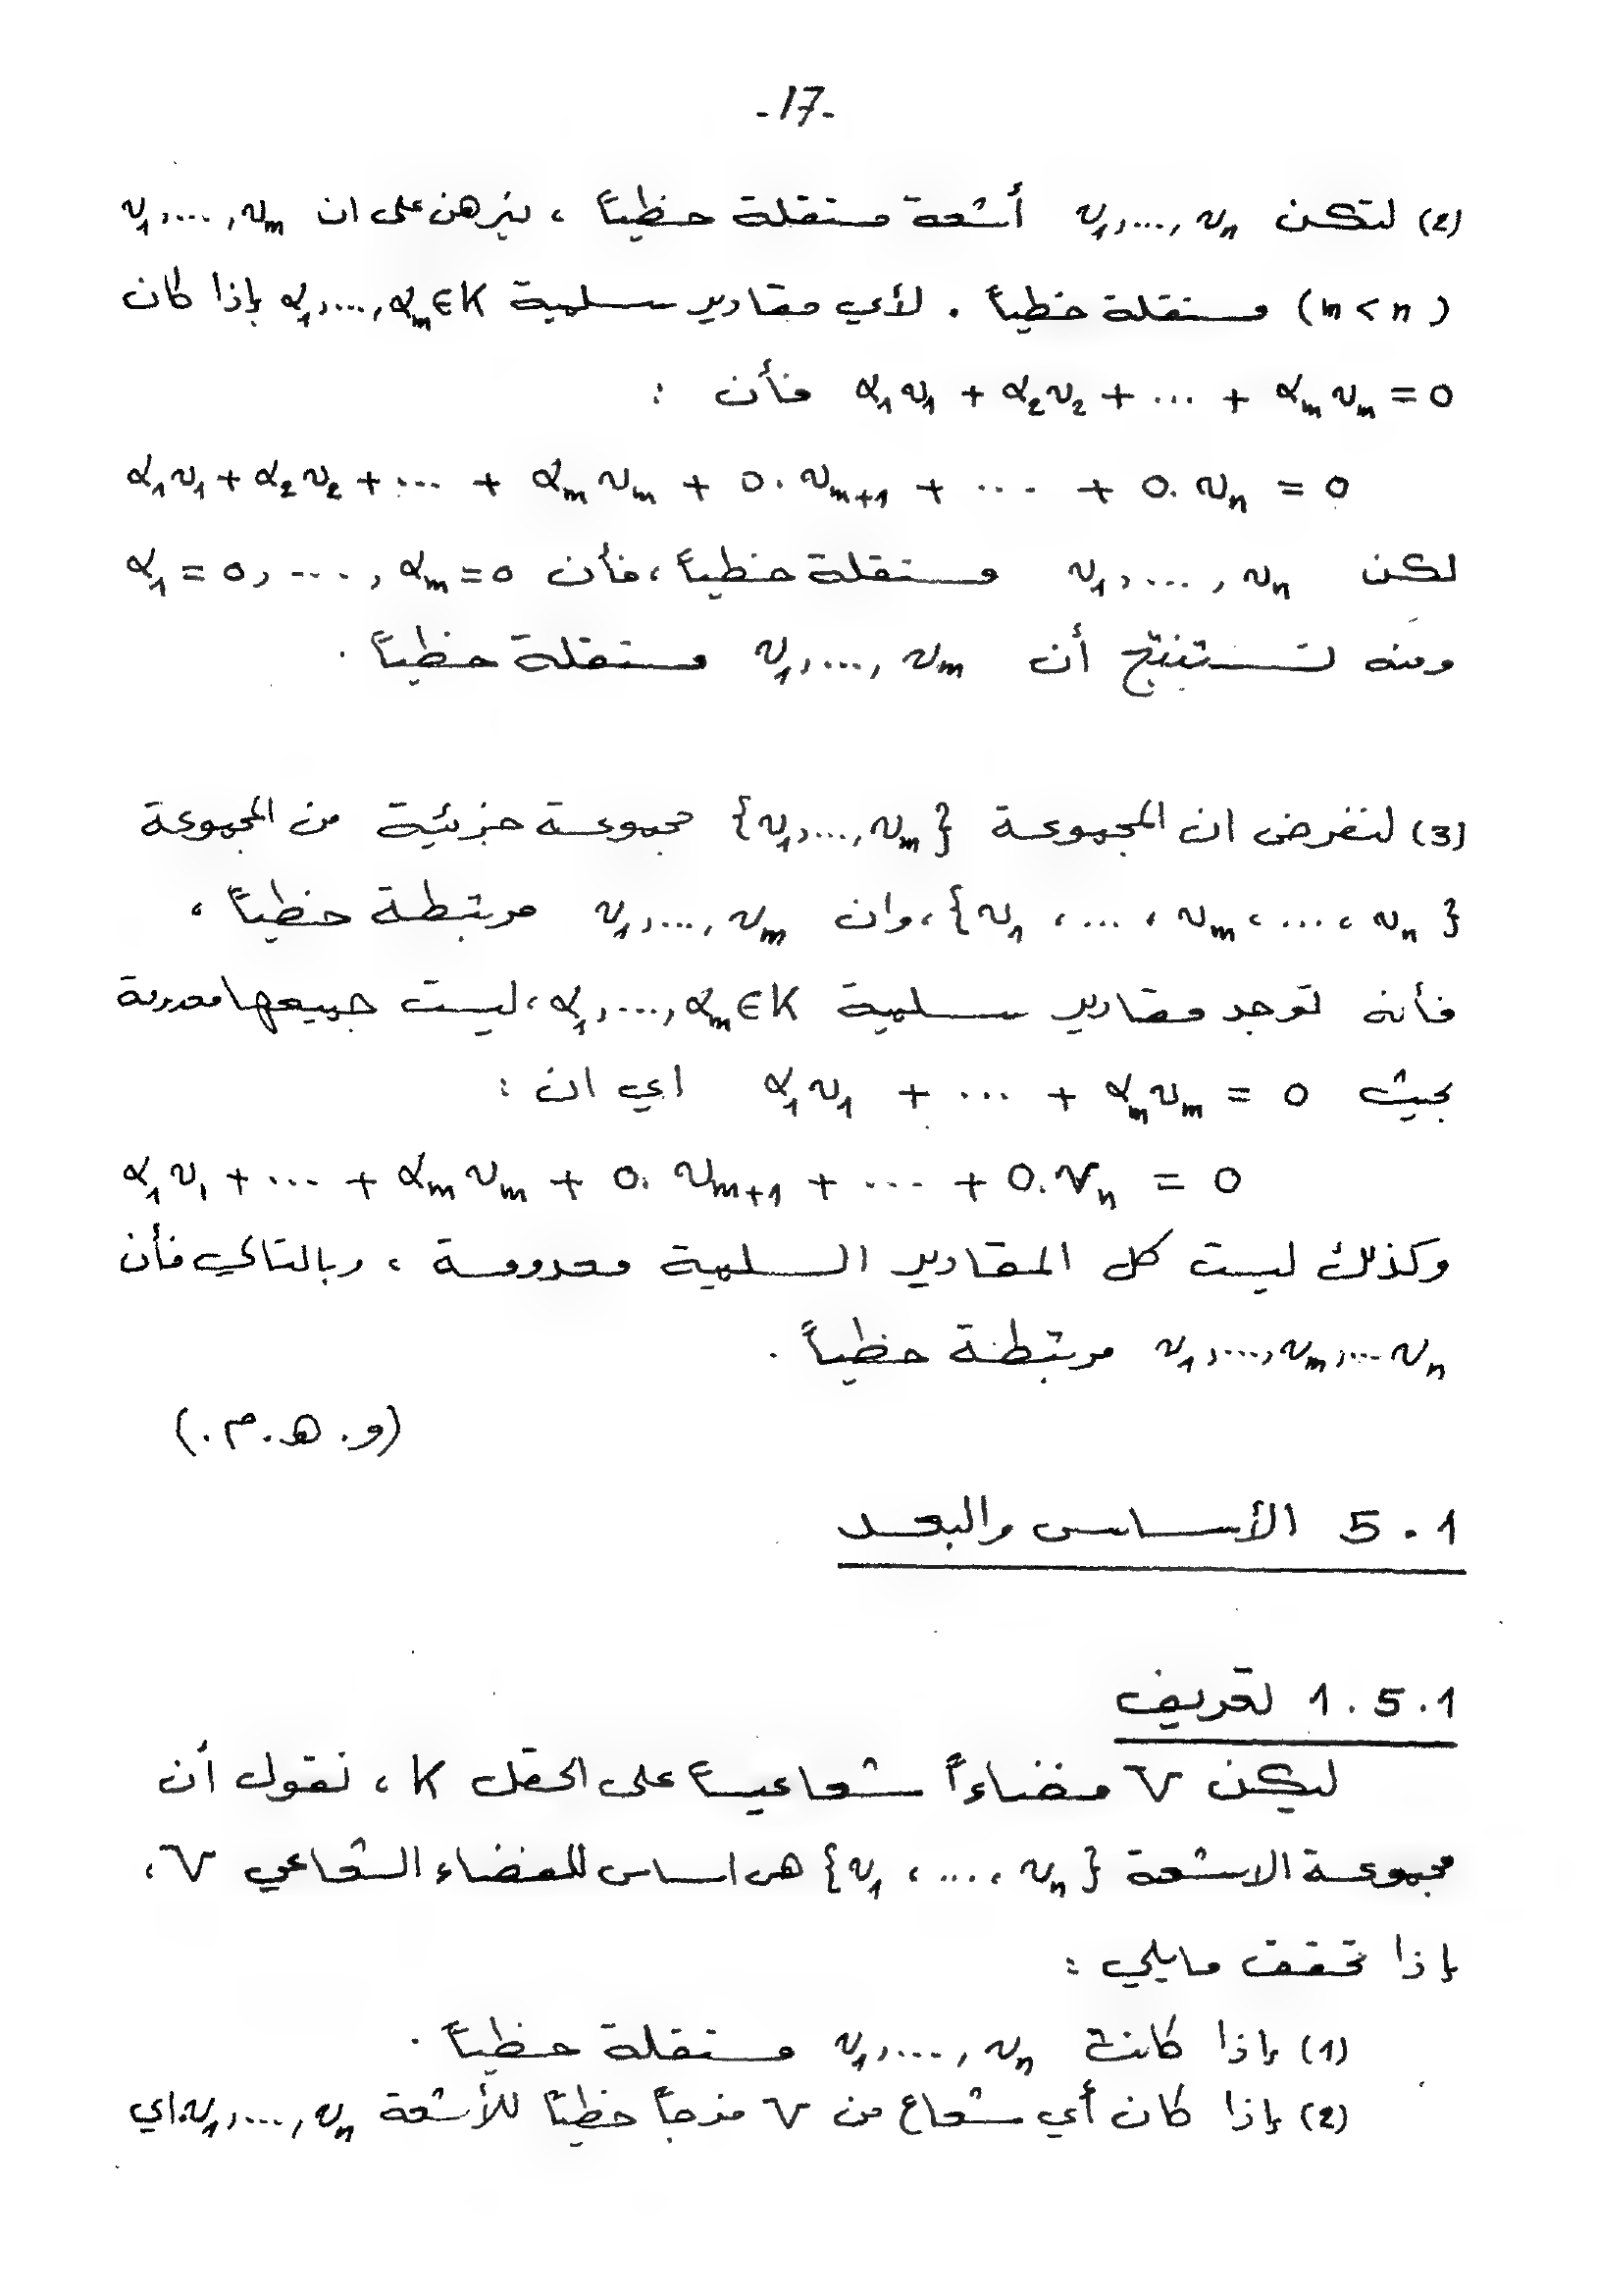 -17-
(2) لتكن v₁,...,vₙ أشعة مستقلة خطياً ، لنبرهن على ان v₁,...,vₘ
(m < n) مستقلة خطياً . لأي مقادير سلمية α₁,...,αₘ∈K إذا كان
α₁v₁ + α₂v₂ + ... + αₘvₘ = 0 فأن :
α₁v₁ + α₂v₂ + ... + αₘvₘ + 0.vₘ₊₁ + ... + 0.vₙ = 0
لكن v₁,...,vₙ مستقلة خطياً ، فأن α₁=0,....,αₘ=0
ومنه نستنتج أن v₁,...,vₘ مستقلة خطياً .
(3) لنفرض ان المجموعة {v₁,...,vₘ} مجموعة جزئية من المجموعة
{v₁ ، ... ، vₘ ، ... ، vₙ} ، وان v₁,...,vₘ مرتبطة خطياً ،
فأنه توجد مقادير سلمية α₁,...,αₘ∈K ، ليست جميعها معدومة
بحيث α₁v₁ + ... + αₘvₘ = 0 اي ان :
α₁v₁ + ... + αₘvₘ + 0.vₘ₊₁ + ... + 0.vₙ = 0
وكذلك ليست كل المقادير السلمية معدومة ، وبالتالي فأن
v₁,...,vₘ,...vₙ مرتبطة خطياً .
(و. ه. م.)
5.1 الأساس والبعد
1.5.1 تعريف
ليكن V فضاءاً شعاعياً على الحقل K ، نقول أن
مجموعة الاشعة {v₁ ، ... ، vₙ} هي اساس للفضاء الشعاعي V ،
إذا تحقق مايلي :
(1) إذا كانت v₁,...,vₙ مستقلة خطياً .
(2) إذا كان أي شعاع من V مزجاً خطياً للأشعة v₁,...,vₙ.اي